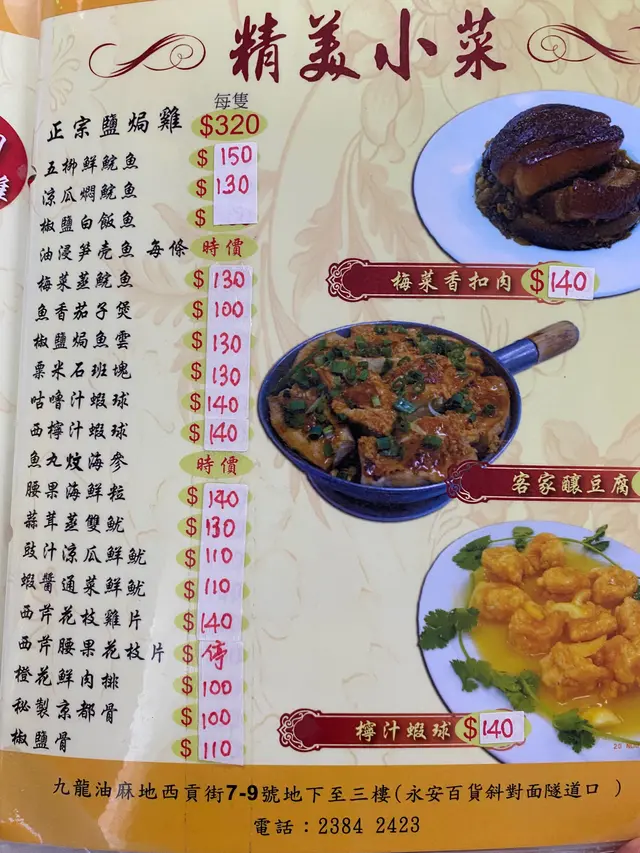 精美小菜
每隻
正宗鹽焗雞 $320
五柳鮮鯇魚 $150
涼瓜焖鯇魚 $130
椒鹽白飯魚 $
油浸笋壳魚 每條 時價
梅菜蒸鯇魚 $130
魚香茄子煲 $100
椒鹽焗魚雲 $130
粟米石班塊 $130
咕嚕汁蝦球 $140
西檸汁蝦球 $140
魚丸炆海參 時價
腰果海鮮粒 $140
蒜茸蒸雙魷 $130
豉汁涼瓜鮮魷 $110
蝦醬通菜鮮魷 $110
西芹花枝雞片 $140
西芹腰果花枝片 $停
橙花鮮肉排 $100
秘製京都骨 $100
椒鹽骨 $110
梅菜香扣肉 $140
客家釀豆腐
檸汁蝦球 $140
九龍油麻地西貢街7-9號地下至三樓(永安百貨斜對面隧道口 )
電話：2384 2423